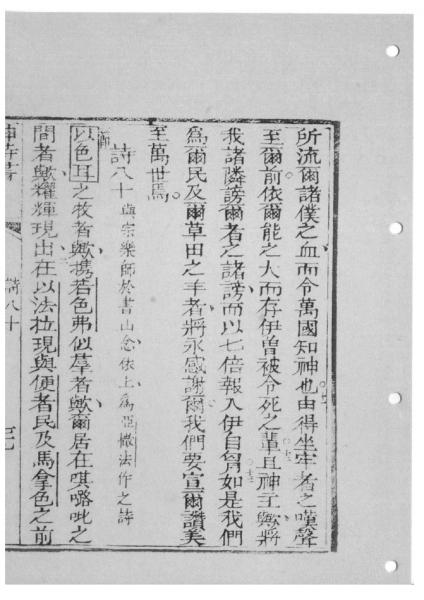 所流爾諸僕之血而令萬國知神也由得坐牢者之嘆聲
至爾前依爾能之大而存伊曾被令死之輩且神主歟將
我諸隣謗爾者之諸謗而以七倍報入伊自胷如是我們
為爾民及爾草田之羊者將永感謝爾我們要宣爾讚美
至萬世焉
詩八十與宗樂師於書山念依上為亞撒法作之詩
以色耳之牧者歟携若色弗似羣者歟爾居在𠸄咯吡之
間者歟耀輝現出在以法拉現與便者民及馬拿色之前
詩八十